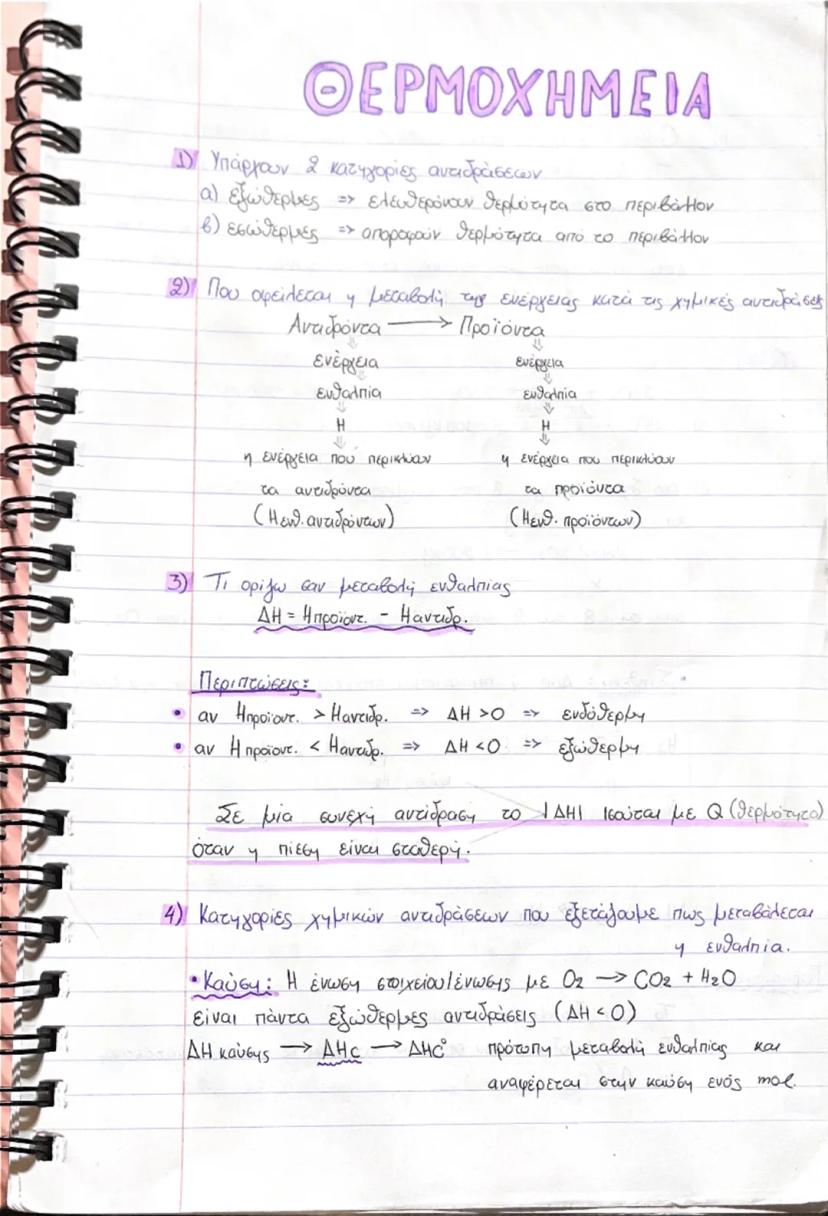 ΘΕΡΜΟΧΗΜΕΙΑ
1) Υπάρχουν 2 κατηγορίες αντιδράσεων
α) εξώθερμες => ελευθερώνουν θερμότητα στο περιβάλλον
β) εσώθερμες => απορροφούν θερμότητα από το περιβάλλον
2) Που οφείλεται η μεταβολή της ενέργειας κατά τις χημικές αντιδράσεις
Αντιδρώντα → Προϊόντα
⇓ ⇓
ενέργεια ενέργεια
⇓ ⇓
ενθαλπία ενθαλπία
⇓ ⇓
Η Η
⇓ ⇓
η ενέργεια που περικλύουν η ενέργεια που περικλύουν
τα αντιδρώντα τα προϊόντα
(Ηενθ. αντιδρώντων) (Ηενθ. προϊόντων)
3) Τι ορίζω σαν μεταβολή ενθαλπίας
ΔΗ = Ηπροϊοντ. - Ηαντιδρ.
Περιπτώσεις:
• αν Ηπροϊοντ. > Ηαντιδρ. => ΔΗ >0 => ενδόθερμη
• αν Ηπροϊοντ. < Ηαντιδρ. => ΔΗ <0 => εξώθερμη
Σε μία συνεχή αντίδραση το |ΔΗ| ισούται με Q (θερμότητα)
όταν η πίεση είναι σταθερή.
4) Κατηγορίες χημικών αντιδράσεων που εξετάζουμε πως μεταβάλεται
η ενθαλπία.
• Καύση: Η ένωση στοιχείου/ένωσης με O2 → CO2 + H2O
είναι πάντα εξώθερμες αντιδράσεις (ΔΗ < 0)
ΔΗ καύσης → ΔΗc → ΔΗc° πρότυπη μεταβολή ενθαλπίας και
αναφέρεται στην καύση ενός mol.